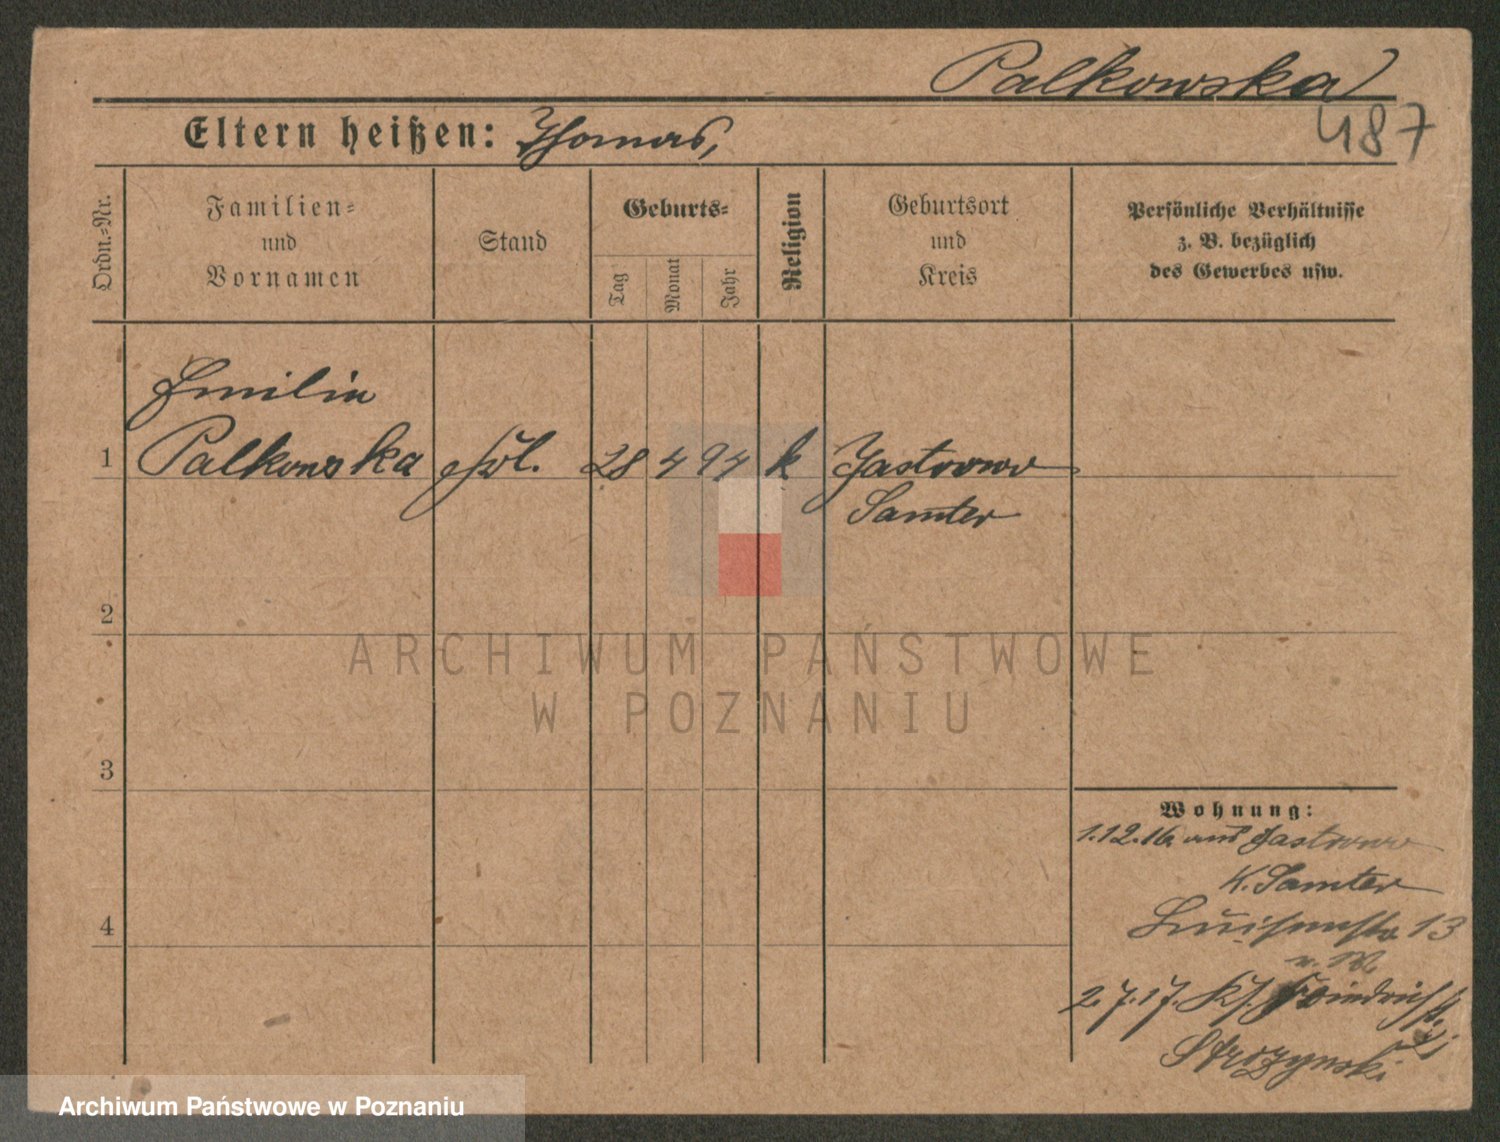 Palkowska
487
Eltern heißen: Thomas,
Ordn.=Nr.
Familien=
und
Vornamen
Stand
Geburts=
Tag
Monat
Jahr
Religion
Geburtsort
und
Kreis
Persönliche Verhältnisse
z. B. bezüglich
des Gewerbes usw.
Emilia
1 Palkowska 28 4 94 k Jastrowo
Samter
2
ARCHIWUM PAŃSTWOWE
W POZNANIU
3
Wohnung:
1.12.16 aus Jastrowo
K. Samter
4
Luisenstr 13
2.7.17. Friedrichstr.
Strozynski
Archiwum Państwowe w Poznaniu